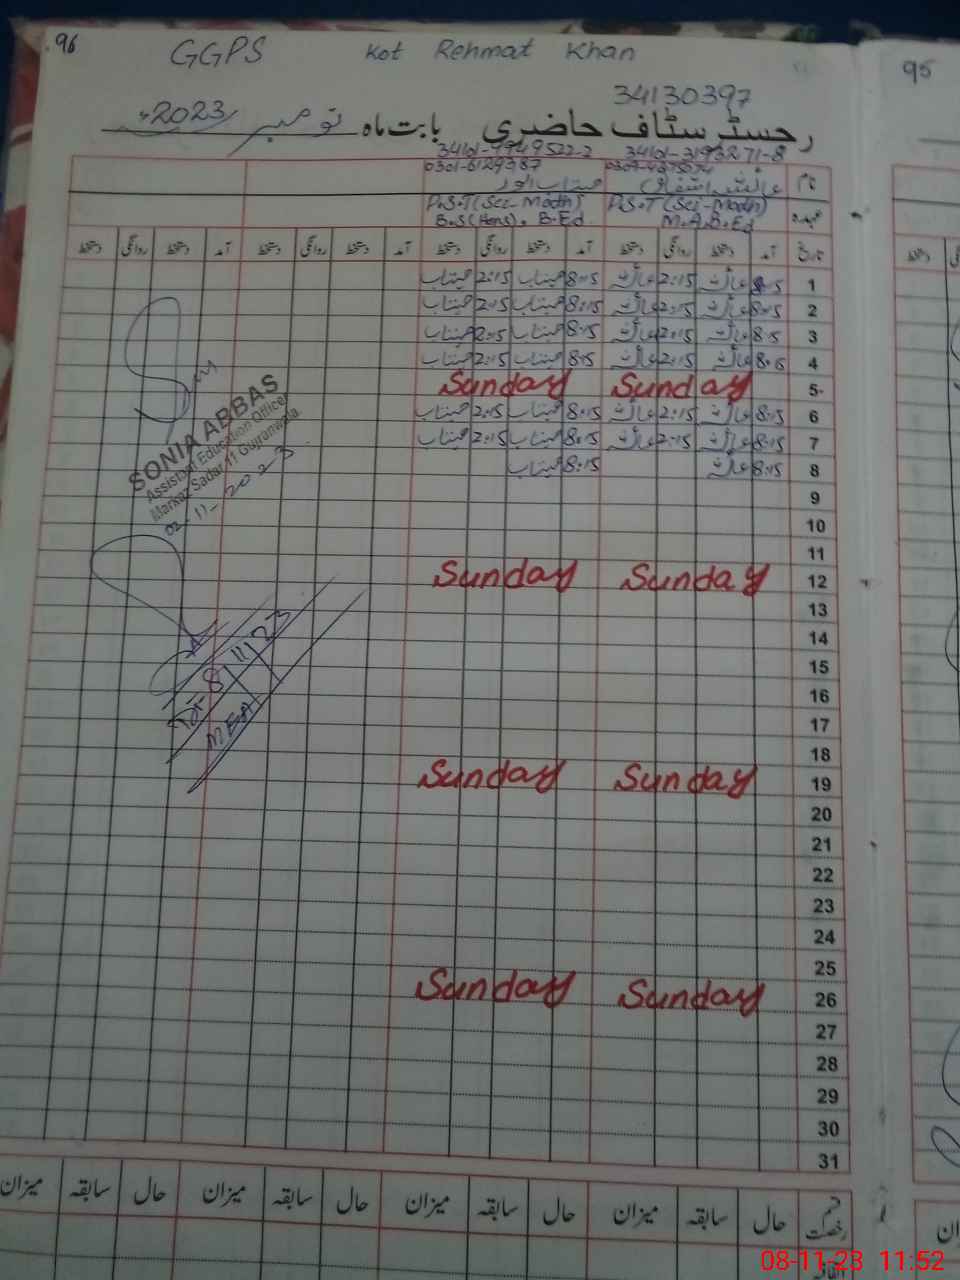 96
GGPS Kot Rehmat Khan
95
34130397
رجسٹر سٹاف حاضری بابت ماہ نومبر 2023ء
34101-9949522-2 34101-3193271-8
0301-6129387
نام عائشہ اشفاق
عہدہ P.S.T (Sci-Math) P.S.T (Sci-Math)
M.A, B.Ed B.S (Hons), B.Ed
تاریخ آمد دستخط روانگی دستخط آمد دستخط روانگی دستخط آمد دستخط روانگی دستخط آمد دستخط روانگی دستخط
1 8:15 عائشہ 2:15 عائشہ 8:15 2:15
2 8:15 عائشہ 2:15 عائشہ 8:15 2:15
3 8:15 عائشہ 2:15 عائشہ 8:15 2:15
4 عائشہ 2:15 عائشہ 8:15 2:15
5 Sunday Sunday
6 8:15 عائشہ 2:15 عائشہ 8:15 2:15
7 8:15 عائشہ 2:15 عائشہ 8:15 2:15
8 8:15 عائشہ 8:15
9
10
11
12 Sunday Sunday
13
14
15
16
17
18
19 Sunday Sunday
20
21
22
23
24
25
26 Sunday Sunday
27
28
29
30
31
SONIA ABBAS
Assistant Education Officer
Markaz Sadar 11 Gujranwala
02-11-2023
8/11/23
MEA
قسم رخصت حال سابقہ میزان حال سابقہ میزان حال سابقہ میزان حال سابقہ میزان
اتفاقیہ
08-11-23 11:52